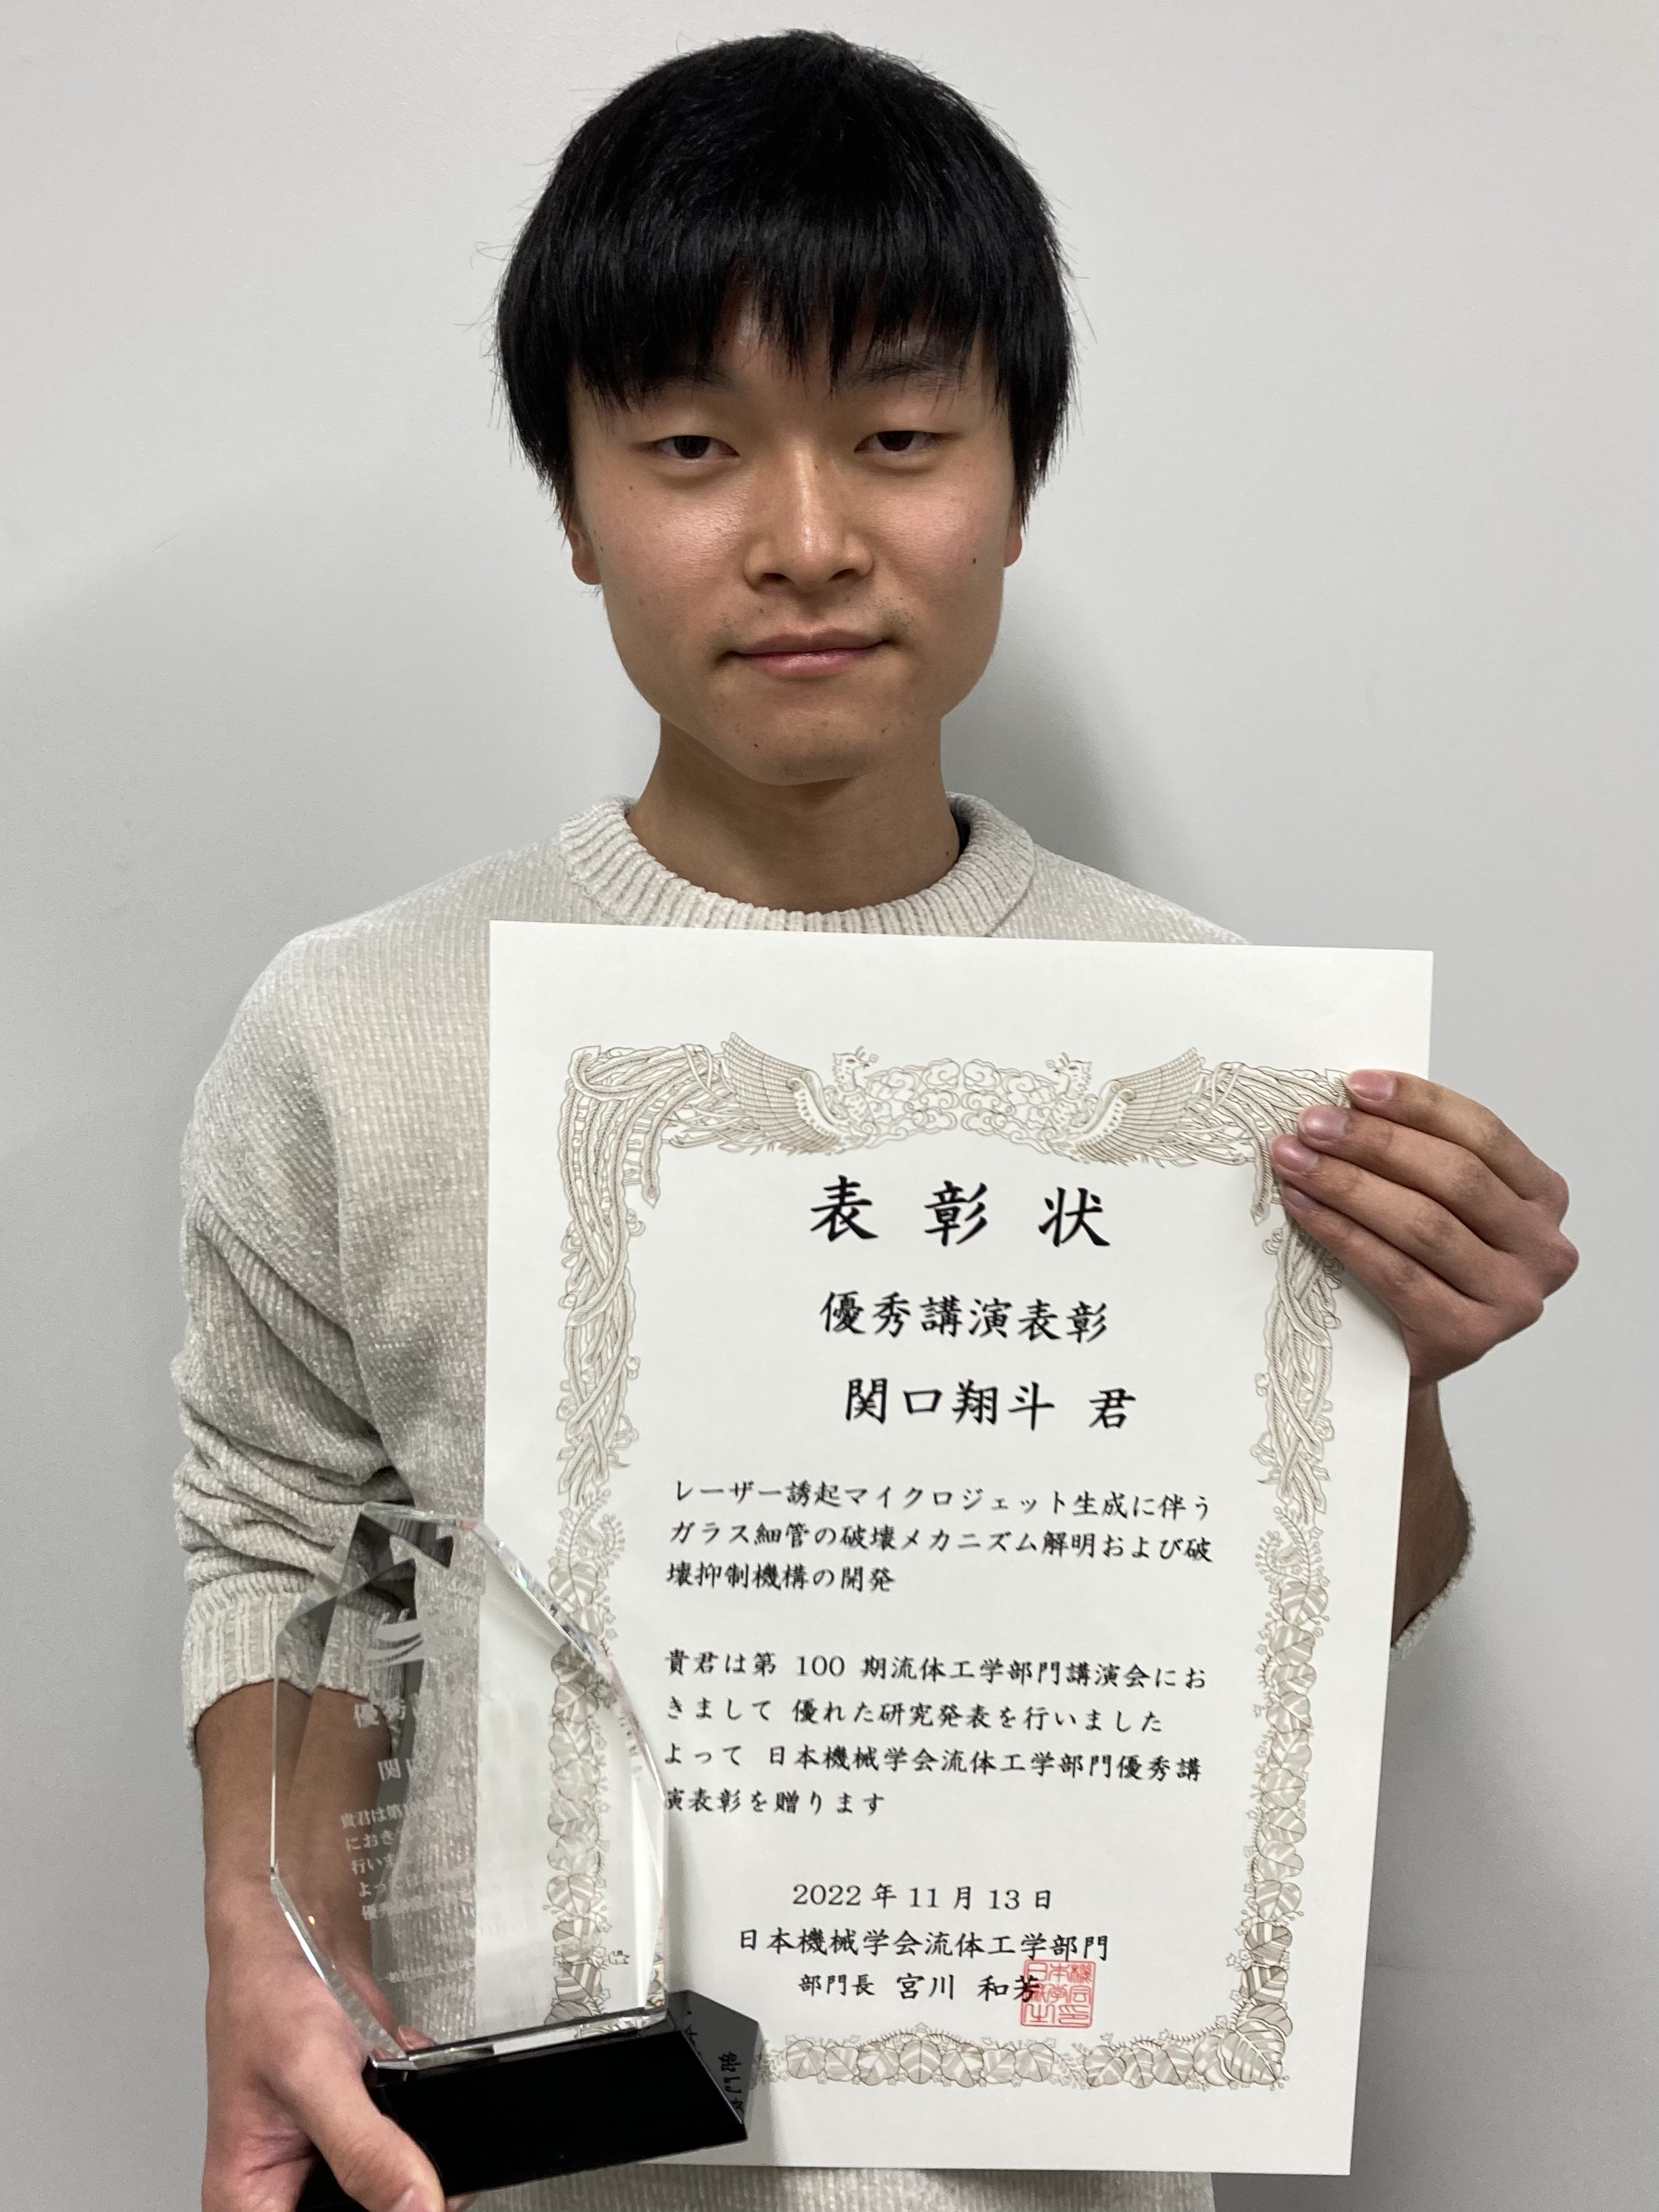 表彰状
優秀講演表彰
関口翔斗 君
レーザー誘起マイクロジェット生成に伴う
ガラス細管の破壊メカニズム解明および破
壊抑制機構の開発
貴君は第 100 期流体工学部門講演会にお
きまして 優れた研究発表を行いました
よって 日本機械学会流体工学部門優秀講
演表彰を贈ります
2022年11月13日
日本機械学会流体工学部門
部門長 宮川 和芳
優秀
関口
貴君は第
におき
行いま
よって
優秀